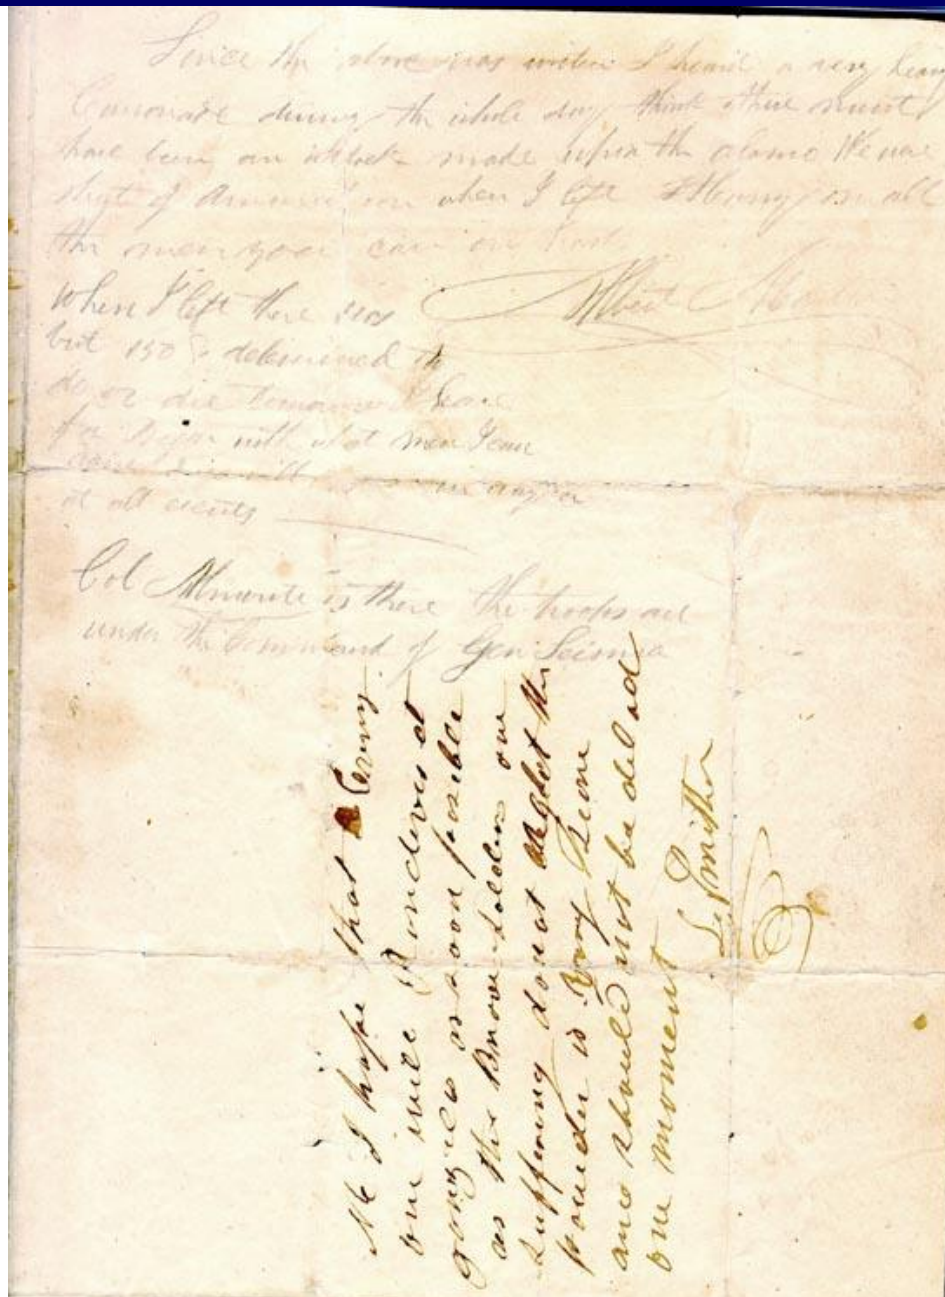 Since the above was written I heard a very heavy
Cannonade during the whole day think there must
have been an attack made upon the alamo We were
short of Ammunition when I left Hurry on all
the men you can in haste
Albert Martin
When I left there was
but 150 determined to
do or die tomorrow I leave
for Bejar with what men I can
at all events
Col Almonte is there the troops are
under the Command of Gen Seisma
Nb I hope that Every
one will Randeves at
gonzales as soon posible
as the Brave Soldiers are
suffering do not neglect the
powder is very scarce
and should not be delad
one moment
L. Smither